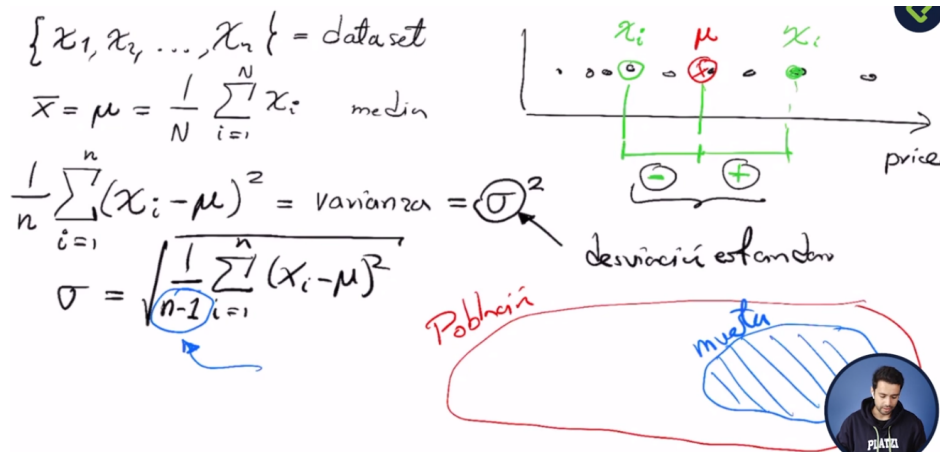 {x₁, x₂, ..., xₙ} = dataset
x̄ = μ = 1/N ∑_{i=1}^{N} xᵢ media
1/n ∑_{i=1}^{n} (xᵢ - μ)² = varianza = σ²
desviación estandar
σ = √(1/(n-1) ∑_{i=1}^{n} (xᵢ - μ)²)
xᵢ μ xᵢ
price
- +
Población
muestra
PLATZI